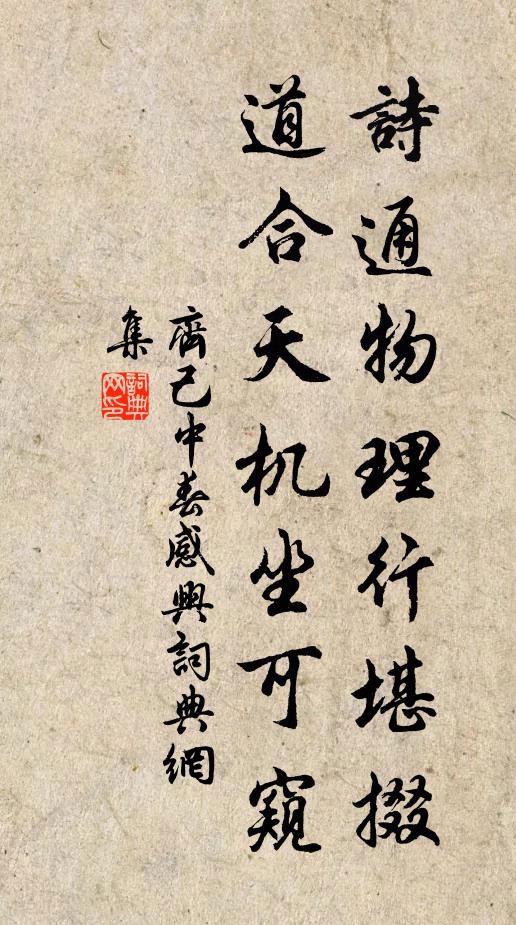 詩通物理行堪掇
道合天机坐可窺
齊己中春感興詞典網
集
詞典
网印